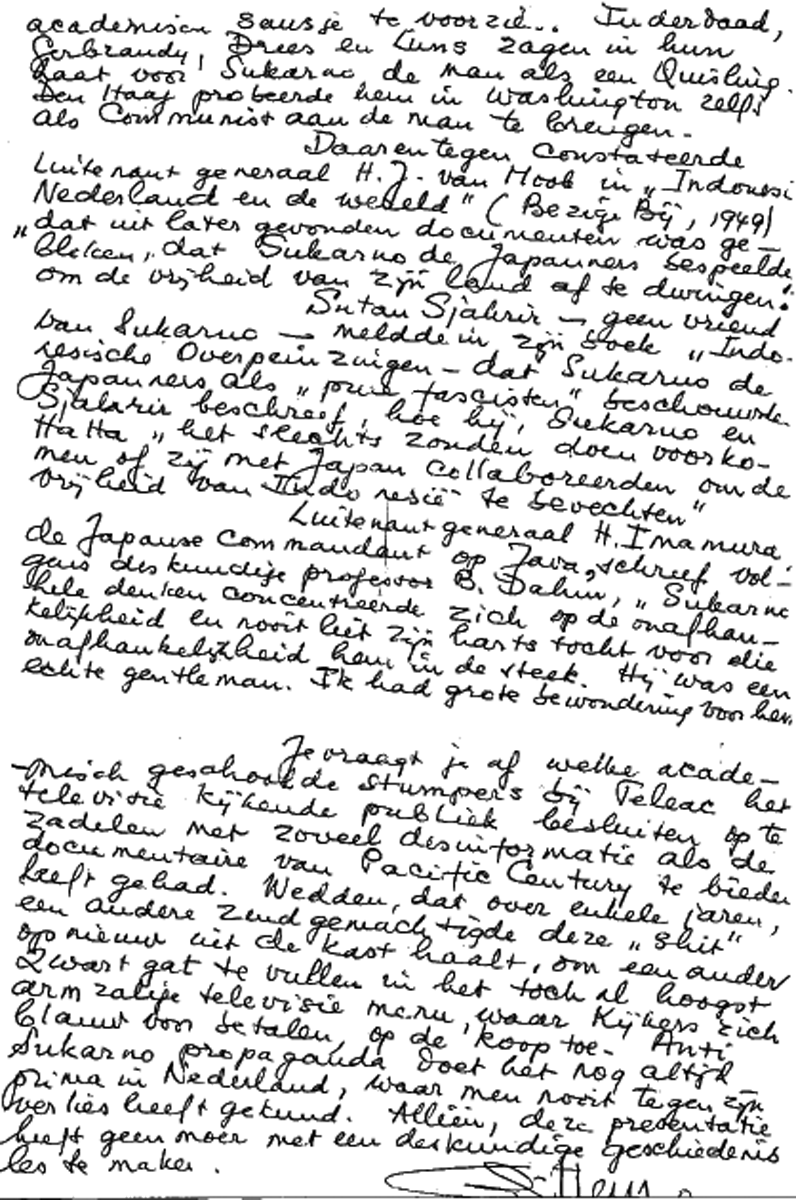 academisch sausje te voorzie... Inderdaad,
Gerbrandy, Drees en Luns zagen in hun
haat voor Sukarno de man als een Quisling.
Den Haag probeerde hem in Washington zelfs
als Communist aan de man te brengen.
Daarentegen constateerde
Luitenant generaal H.J. van Mook in „Indonesi
Nederland en de wereld" (Bezige Bij, 1949)
„dat uit later gevonden documenten was ge-
bleken, dat Sukarno de Japanners bespeelde
om de vrijheid van zijn land af te dwingen."
Sutan Sjahrir — geen vriend
van Sukarno — meldde in zijn boek „Indo-
nesische Overpeinzingen - dat Sukarno de
Japanners als „pure fascisten" beschouwde.
Sjahrir beschreef, hoe hij, Sukarno en
Hatta „het slechts zonden doen voorko-
men of zij met Japan collaboreerden om de
vrijheid van Indonesië te bevechten"
Luitenant generaal H. Imamura
de Japanse Commandant op Java, schreef vol-
gens deskundige professor B. Dahm, „Sukarno
hele denken concentreerde zich op de onafhan-
kelijkheid en nooit liet zijn hartstocht voor die
onafhankelijkheid hem in de steek. Hij was een
echte gentleman. Ik had grote bewondering voor hem.
Je vraagt je af welke acade-
-misch geschoolde stumpers bij Teleac het
televisie kijkende publiek besluiten op te
zadelen met zoveel desinformatie als de
documentaire van Pacific Century te bieden
heeft gehad. Wedden, dat over enkele jaren,
een andere zendgemachtigde deze „shit"
opnieuw uit de kast haalt, om een ander
zwart gat te vullen in het toch al hoogst
armzalige televisie menu, waar kijkers zich
blauw voor betalen, op de koop toe. Anti
Sukarno propaganda doet het nog altijd
prima in Nederland, waar men nooit tegen zijn
verlies heeft gekund. Alléén, deze presentatie
heeft geen moer met een deskundige geschiedenis
les te maken.